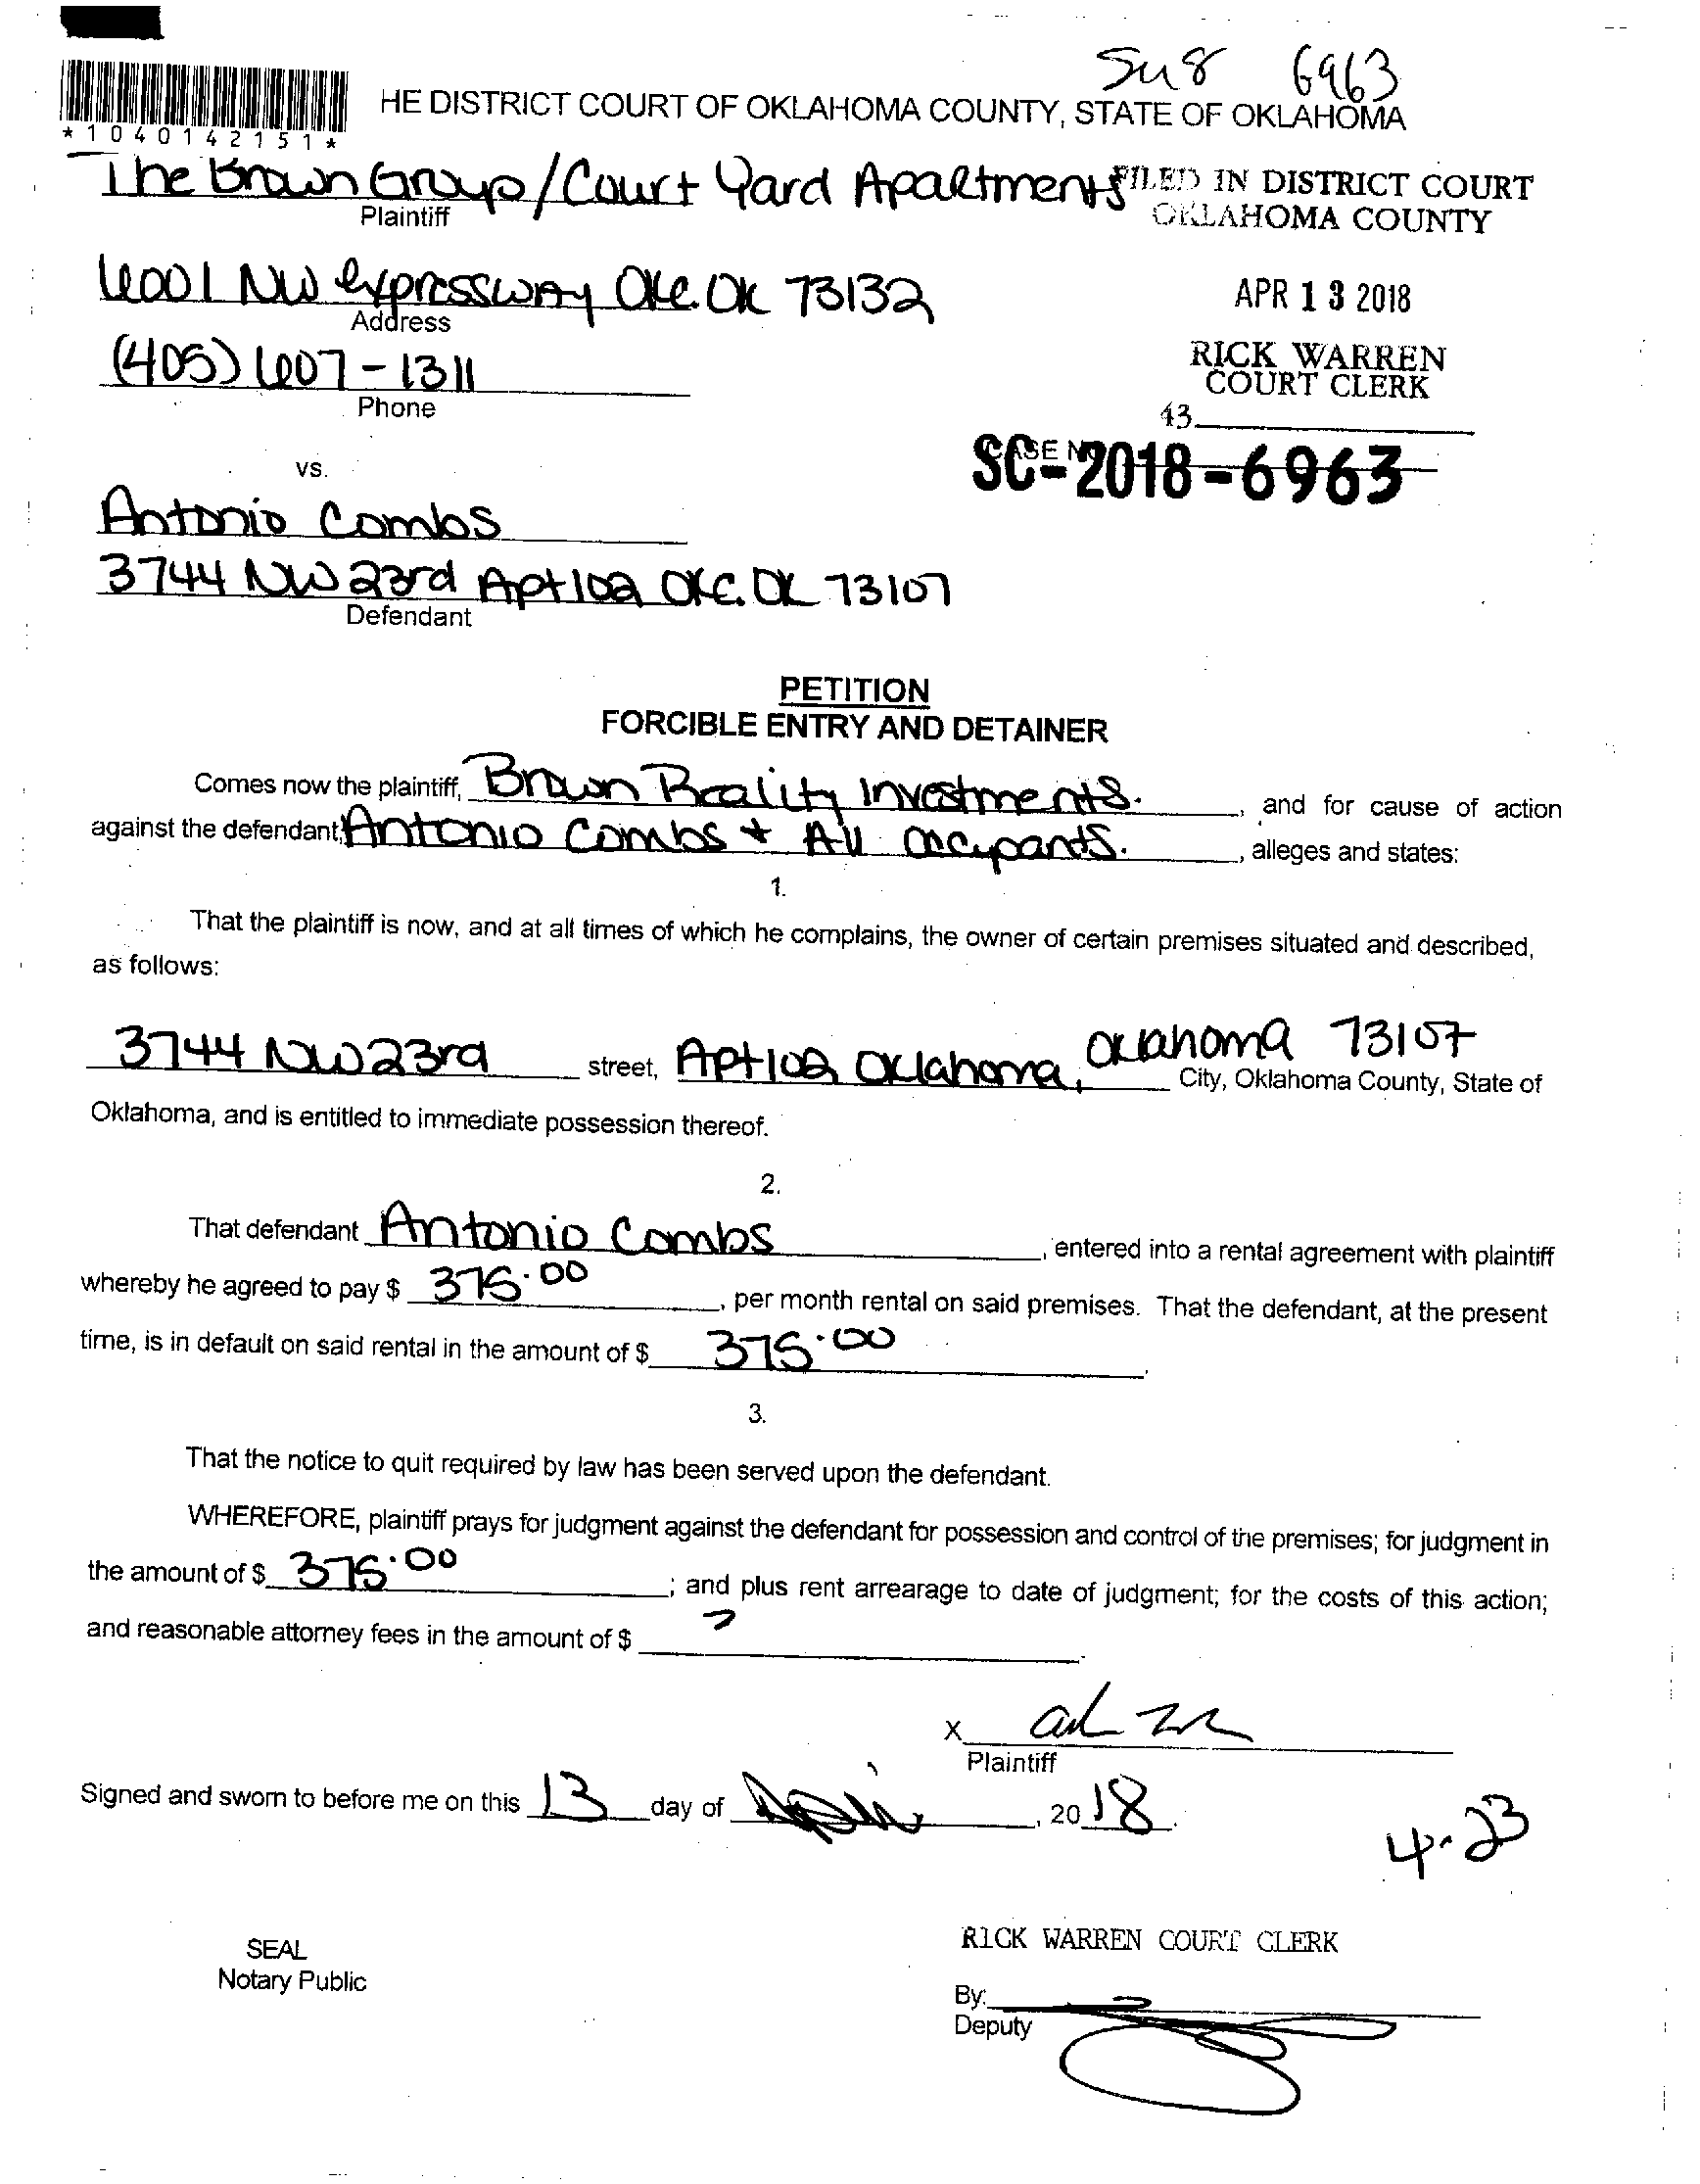 Su8 6963
HE DISTRICT COURT OF OKLAHOMA COUNTY, STATE OF OKLAHOMA
*1040142151*
The Brown Group/Court Yard Apartments
Plaintiff
FILED IN DISTRICT COURT
OKLAHOMA COUNTY
6001 NW expressway OKC. OK 73132
Address
APR 13 2018
(405) 607-1311
Phone
RICK WARREN
COURT CLERK
43
vs.
CASE N
SC-2018-6963
Antonio Combs
3744 NW 23rd Apt 102 OKC. OK 73107
Defendant
PETITION
FORCIBLE ENTRY AND DETAINER
Comes now the plaintiff, Brown Reality Investments. , and for cause of action
against the defendant, Antonio Combs + All occupants. , alleges and states:
1.
That the plaintiff is now, and at all times of which he complains, the owner of certain premises situated and described,
as follows:
3744 NW 23rd street, Apt 102 Oklahoma, Oklahoma 73107 City, Oklahoma County, State of
Oklahoma, and is entitled to immediate possession thereof.
2.
That defendant Antonio Combs , entered into a rental agreement with plaintiff
whereby he agreed to pay $ 375.00 , per month rental on said premises. That the defendant, at the present
time, is in default on said rental in the amount of $ 375.00 .
3.
That the notice to quit required by law has been served upon the defendant.
WHEREFORE, plaintiff prays for judgment against the defendant for possession and control of the premises; for judgment in
the amount of $ 375.00 ; and plus rent arrearage to date of judgment; for the costs of this action;
and reasonable attorney fees in the amount of $ ? .
X
Plaintiff
Signed and sworn to before me on this 13 day of April , 20 18 .
4-23
SEAL
Notary Public
RICK WARREN COURT CLERK
By:
Deputy